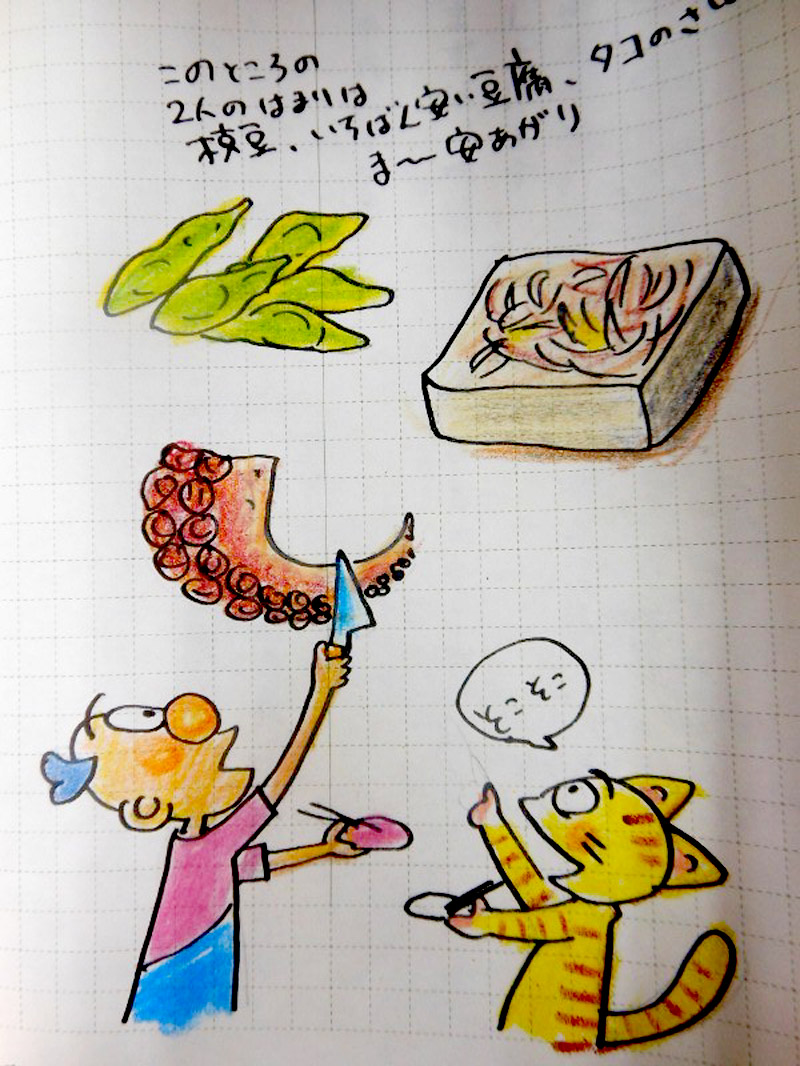 このところの
2人のはまりは
枝豆、いちばん安い豆腐、タコのさ
ま〜安あがり
そこそこ